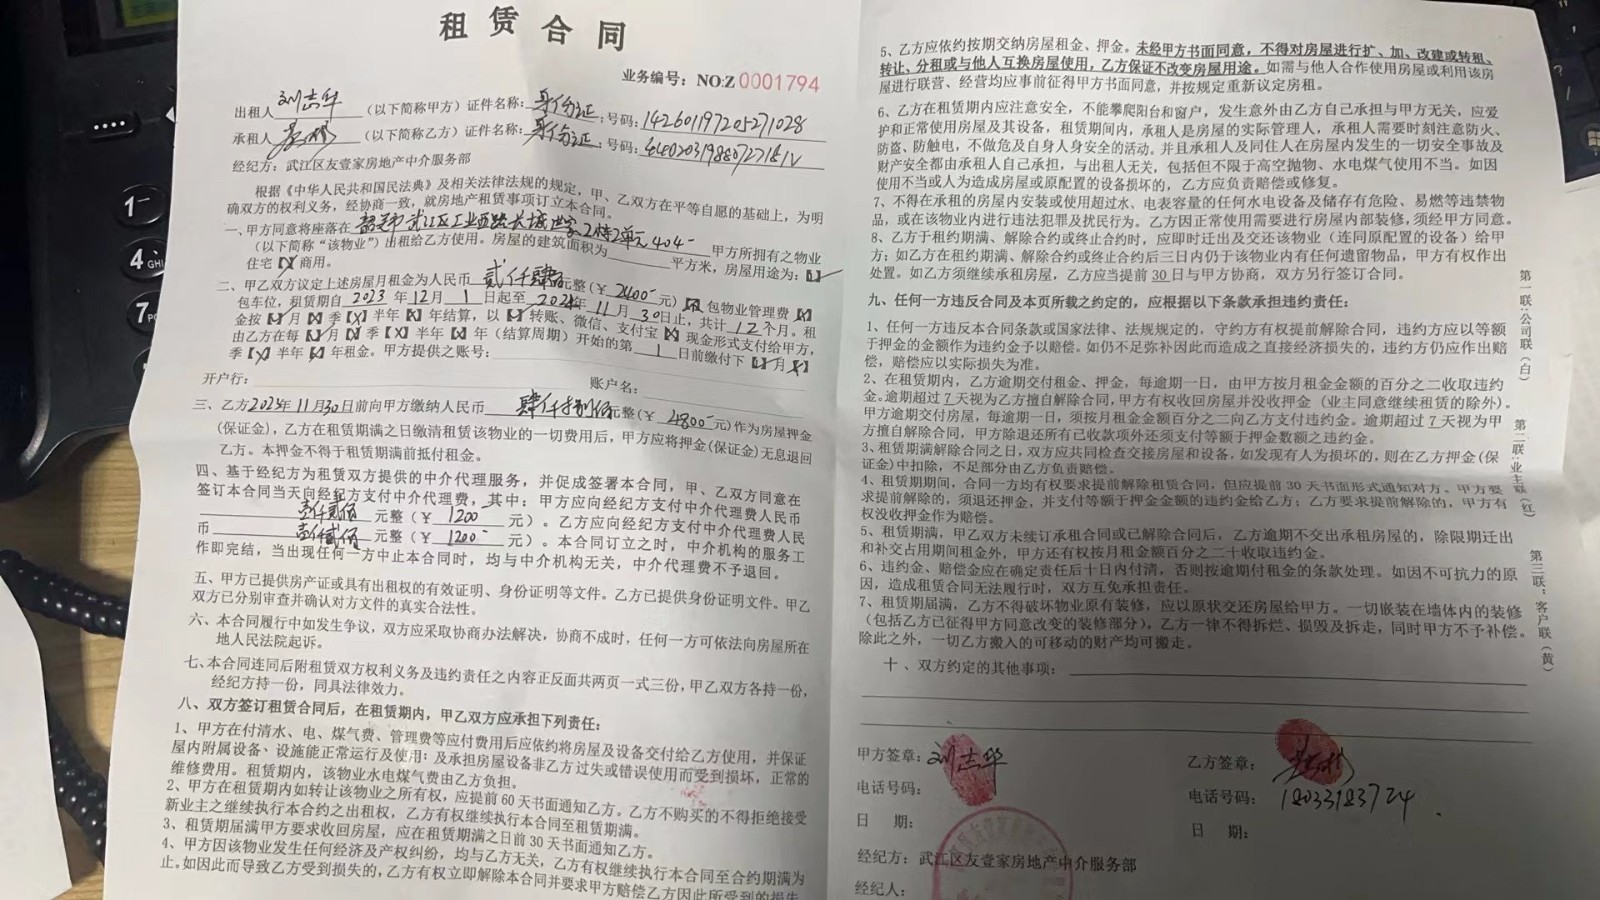 租赁合同
业务编号：NO:Z 0001794
出租人 刘志华 （以下简称甲方）证件名称：身份证；号码：142601197205271028
承租人 （以下简称乙方）证件名称：身份证；号码：
经纪方：武江区友壹家房地产中介服务部
根据《中华人民共和国民法典》及相关法律法规的规定，甲、乙双方在平等自愿的基础上，为明
确双方的权利义务，经协商一致，就房地产租赁事项订立本合同。
一、甲方同意将座落在 韶关市武江区工业西路长城世家2栋2单元404 甲方所拥有之物业
（以下简称“该物业”）出租给乙方使用。房屋的建筑面积为 平方米，房屋用途为：【√】
住宅【X】商用。
二、甲乙双方议定上述房屋月租金为人民币 贰仟肆佰 元整（￥ 2400 元）【X】包物业管理费【X】
包车位，租赁期自 2023 年 12 月 1 日起至 2024 年 11 月 30 日止，共计 12 个月。租
金按【√】月【X】季【X】半年【X】年结算，以【√】转账、微信、支付宝【X】现金形式支付给甲方，
由乙方在每【√】月【X】季【X】半年【X】年（结算周期）开始的第 1 日前缴付下【√】月【X】
季【X】半年【X】年租金。甲方提供之账号：
开户行： 账户名：
三、乙方2023年11月30日前向甲方缴纳人民币 肆仟捌佰 元整（￥ 4800 元）作为房屋押金
（保证金），乙方在租赁期满之日缴清租赁该物业的一切费用后，甲方应将押金（保证金）无息退回
乙方。本押金不得于租赁期满前抵付租金。
四、基于经纪方为租赁双方提供的中介代理服务，并促成签署本合同，甲、乙双方同意在
签订本合同当天向经纪方支付中介代理费，其中：甲方应向经纪方支付中介代理费人民币
壹仟贰佰 元整（￥ 1200 元）。乙方应向经纪方支付中介代理费人民
币 壹仟贰佰 元整（￥ 1200 元）。本合同订立之时，中介机构的服务工
作即完结，当出现任何一方中止本合同时，均与中介机构无关，中介代理费不予退回。
五、甲方已提供房产证或具有出租权的有效证明、身份证明等文件。乙方已提供身份证明文件。甲乙
双方已分别审查并确认对方文件的真实合法性。
六、本合同履行中如发生争议，双方应采取协商办法解决，协商不成时，任何一方可依法向房屋所在
地人民法院起诉。
七、本合同连同后附租赁双方权利义务及违约责任之内容正反面共两页一式三份，甲乙双方各持一份，
经纪方持一份，同具法律效力。
八、双方签订租赁合同后，在租赁期内，甲乙双方应承担下列责任：
1、甲方在付清水、电、煤气费、管理费等应付费用后应依约将房屋及设备交付给乙方使用，并保证
屋内附属设备、设施能正常运行及使用；及承担房屋设备非乙方过失或错误使用而受到损坏，正常的
维修费用。租赁期内，该物业水电煤气费由乙方负担。
2、甲方在租赁期内如转让该物业之所有权，应提前60天书面通知乙方。乙方不购买的不得拒绝接受
新业主之继续执行本合约之出租权，乙方有权继续执行本合同至租赁期满。
3、租赁期届满甲方要求收回房屋，应在租赁期满之日前30天书面通知乙方。
4、甲方因该物业发生任何经济及产权纠纷，均与乙方无关，乙方有权继续执行本合同至合约期满为
止。如因此而导致乙方受到损失的，乙方有权立即解除本合同并要求甲方赔偿乙方因此所受到的损失
5、乙方应依约按期交纳房屋租金、押金。未经甲方书面同意，不得对房屋进行扩、加、改建或转租、
转让、分租或与他人互换房屋使用，乙方保证不改变房屋用途。如需与他人合作使用房屋或利用该房
屋进行联营、经营均应事前征得甲方书面同意，并按规定重新议定房租。
6、乙方在租赁期内应注意安全，不能攀爬阳台和窗户，发生意外由乙方自己承担与甲方无关，应爱
护和正常使用房屋及其设备，租赁期间内，承租人是房屋的实际管理人，承租人需要时刻注意防火、
防盗、防触电，不做危及自身人身安全的活动。并且承租人及同住人在房屋内发生的一切安全事故及
财产安全都由承租人自己承担，与出租人无关，包括但不限于高空抛物、水电煤气使用不当。如因
使用不当或人为造成房屋或原配置的设备损坏的，乙方应负责赔偿或修复。
7、不得在承租的房屋内安装或使用超过水、电表容量的任何水电设备及储存有危险、易燃等违禁物
品，或在该物业内进行违法犯罪及扰民行为。乙方因正常使用需要进行房屋内部装修，须经甲方同意。
8、乙方于租约期满、解除合约或终止合约时，应即时迁出及交还该物业（连同原配置的设备）给甲
方；如乙方在租约期满、解除合约或终止合约后三日内仍于该物业内有任何遗留物品，甲方有权作出
处置。如乙方须继续承租房屋，乙方应当提前30日与甲方协商，双方另行签订合同。
九、任何一方违反合同及本页所载之约定的，应根据以下条款承担违约责任：
1、任何一方违反本合同条款或国家法律、法规规定的，守约方有权提前解除合同，违约方应以等额
于押金的金额作为违约金予以赔偿。如仍不足弥补因此而造成之直接经济损失的，违约方仍应作出赔
偿，赔偿应以实际损失为准。
2、在租赁期内，乙方逾期交付租金、押金，每逾期一日，由甲方按月租金金额的百分之二收取违约
金。逾期超过7天视为乙方擅自解除合同，甲方有权收回房屋并没收押金（业主同意继续租赁的除外）。
甲方逾期交付房屋，每逾期一日，须按月租金金额百分之二向乙方支付违约金。逾期超过7天视为甲
方擅自解除合同，甲方除退还所有已收款项外还须支付等额于押金数额之违约金。
3、租赁期满解除合同之日，双方应共同检查交接房屋和设备，如发现有人为损坏的，则在乙方押金（保
证金）中扣除，不足部分由乙方负责赔偿。
4、租赁期期间，合同一方均有权要求提前解除租赁合同，但应提前30天书面形式通知对方。甲方要
求提前解除的，须退还押金，并支付等额于押金金额的违约金给乙方；乙方要求提前解除的，甲方有
权没收押金作为赔偿。
5、租赁期满，甲乙双方未续订承租合同或已解除合同后，乙方逾期不交出承租房屋的，除限期迁出
和补交占用期间租金外，甲方还有权按月租金额百分之二十收取违约金。
6、违约金、赔偿金应在确定责任后十日内付清，否则按逾期付租金的条款处理。如因不可抗力的原
因，造成租赁合同无法履行时，双方互免承担责任。
7、租赁期届满，乙方不得破坏物业原有装修，应以原状交还房屋给甲方。一切嵌装在墙体内的装修
（包括乙方已征得甲方同意改变的装修部分），乙方一律不得拆烂、损毁及拆走，同时甲方不予补偿。
除此之外，一切乙方搬入的可移动的财产均可搬走。
十、双方约定的其他事项：
甲方签章：刘志华
乙方签章：
电话号码：
电话号码：18033183724
日 期：
日 期：
经纪方：武江区友壹家房地产中介服务部
经纪人：
第一联：公司联（白）
第二联：业主联（红）
第三联：客户联（黄）
1
4 GHI
7